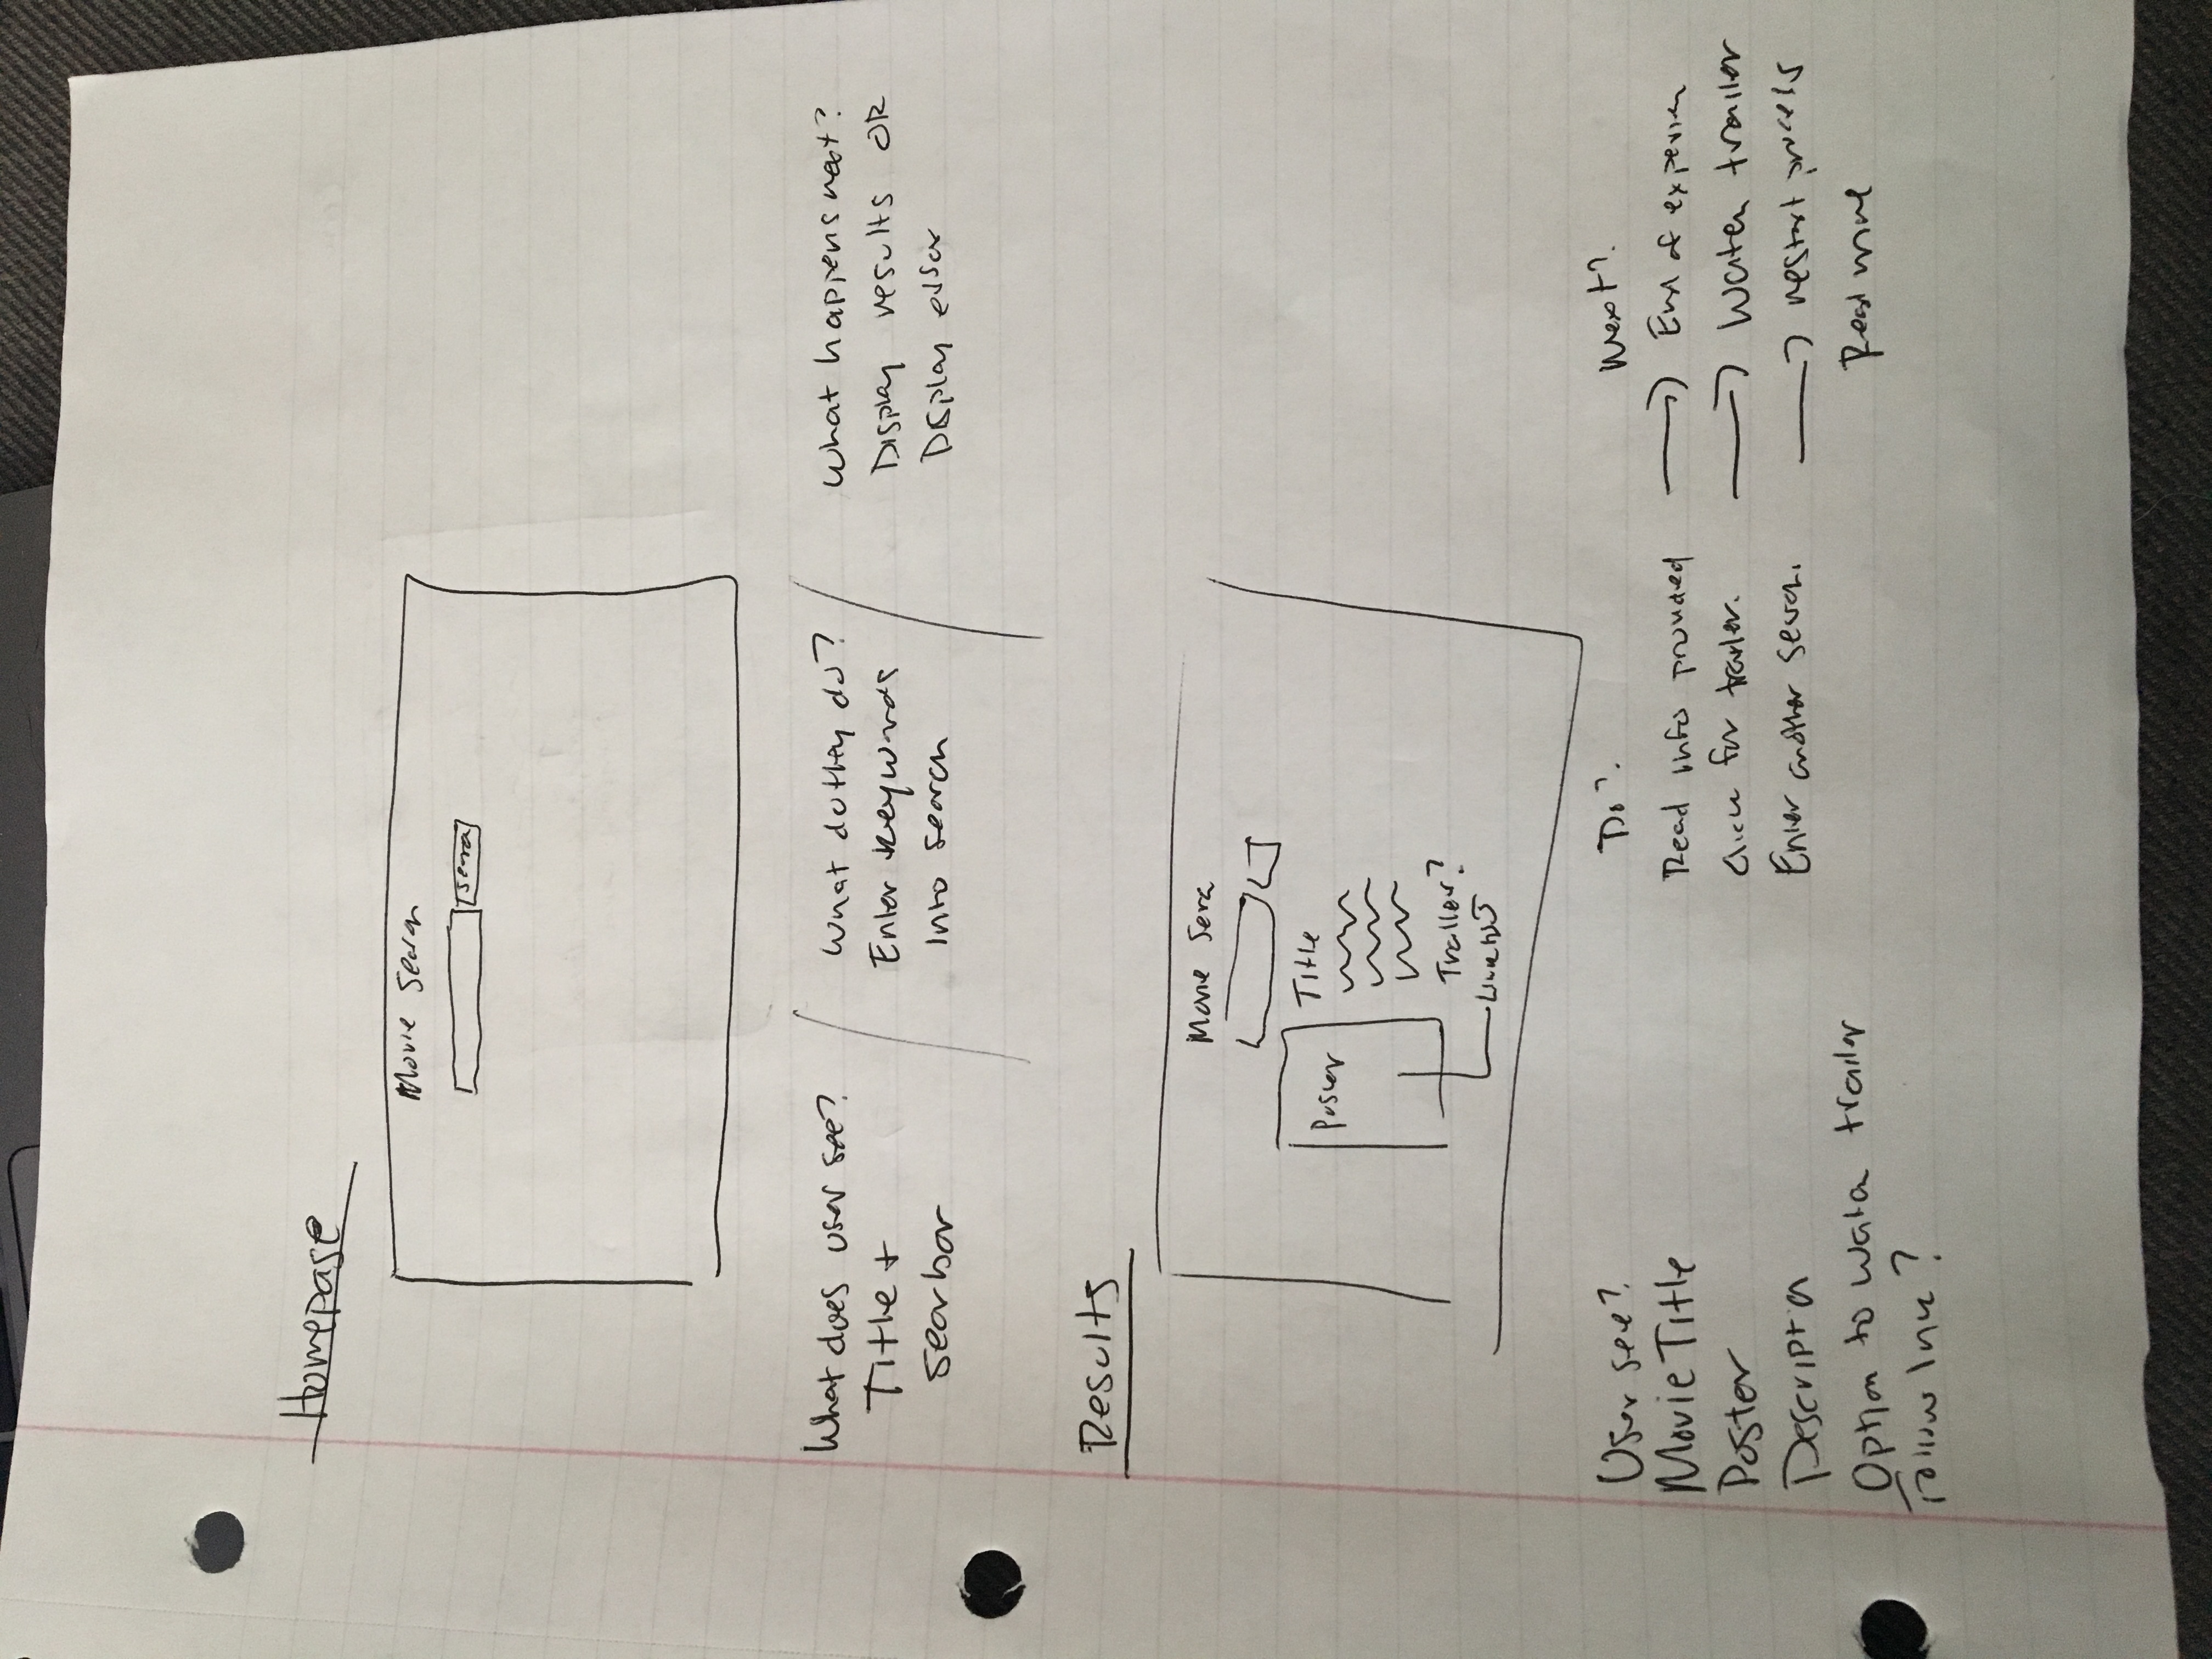 Homepage
Movie Search
Search
What does user see?
Title +
searbar
What do they do?
Enter keywords
Into search
What happens next?
Display results OR
Display error
Results
Movie Serc
Poster
Title
Trailer?
User see?
Movie Title
Poster
Description
Option to watch trailer
Follow link?
Do?
Read info provided
Click for trailer.
Enter another search.
Next?
End of experien
Watch trailer
Restart process
Read more